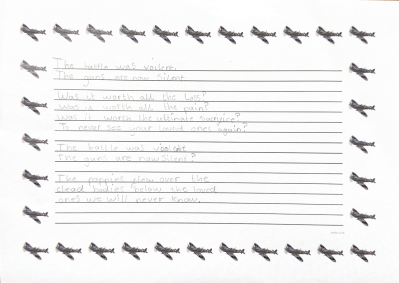 The battle was voilent.
The guns are now silent
Was it worth all the loss?
Was it worth all the pain?
Was it worth the ultimate sacrifice?
To never see your loved ones again?
The battle was
The guns are now silent?
The poppies flew over the
dead bodies below the loved
ones we will never know.